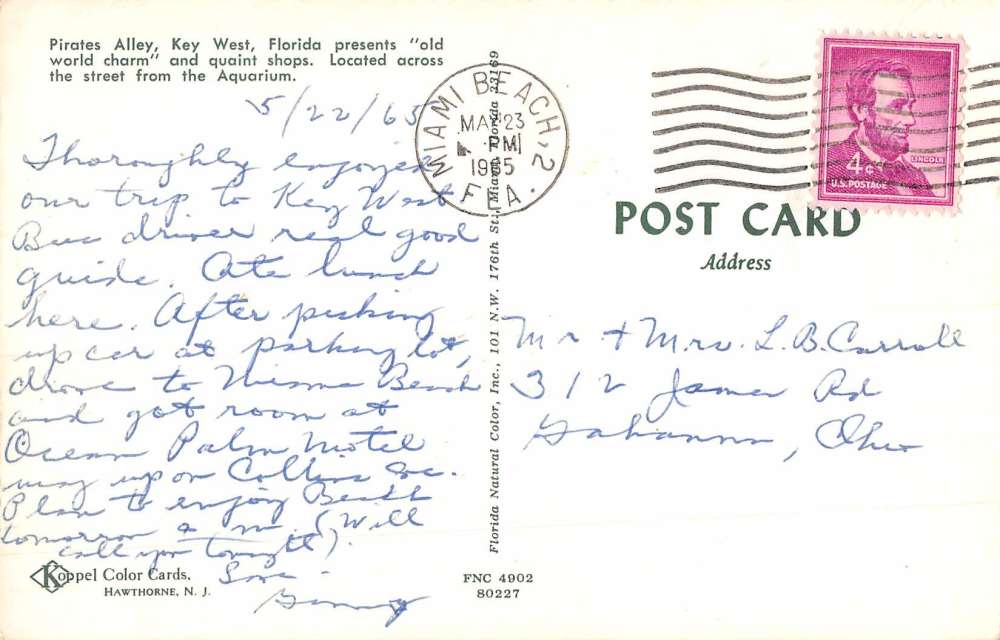 Pirates Alley, Key West, Florida presents "old
world charm" and quaint shops. Located across
the street from the Aquarium.
5/22/65
Thoroughly enjoyed
our trip to Key West
Bus driver real good
guide. Ate lunch
here. After picking
up car at parking lot,
drove to Miami Beach
and got room at
Ocean Palm Motel
way up on Collins Ave.
Plan to enjoy Beach
tomorrow a.m. (Will
call you tonight).
Love -
Koppel Color Cards.
HAWTHORNE, N. J.
Florida Natural Color, Inc., 101 N.W. 176th St., Miami, Florida 33169
FNC 4902
80227
MIAMI BEACH, 2
MAY 23
PM
1965
FLA.
LINCOLN
4c
U.S. POSTAGE
POST CARD
Address
Mr & Mrs. L. B. Carroll
312 James Rd
Gahanna, Ohio